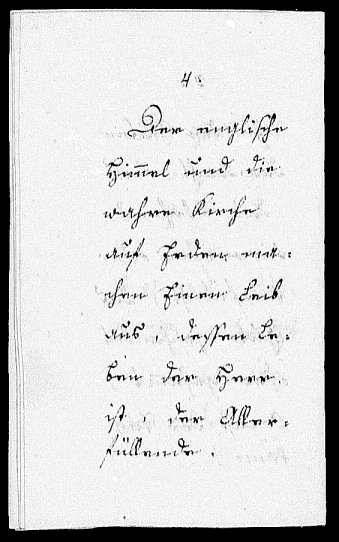 4.
Der englische
Him̅el und die
wahre Kirche
auf Erden ma⸗
chen Einen Leib
aus, dessen Le⸗
ben der Herr
ist, der Aller⸗
füllende.